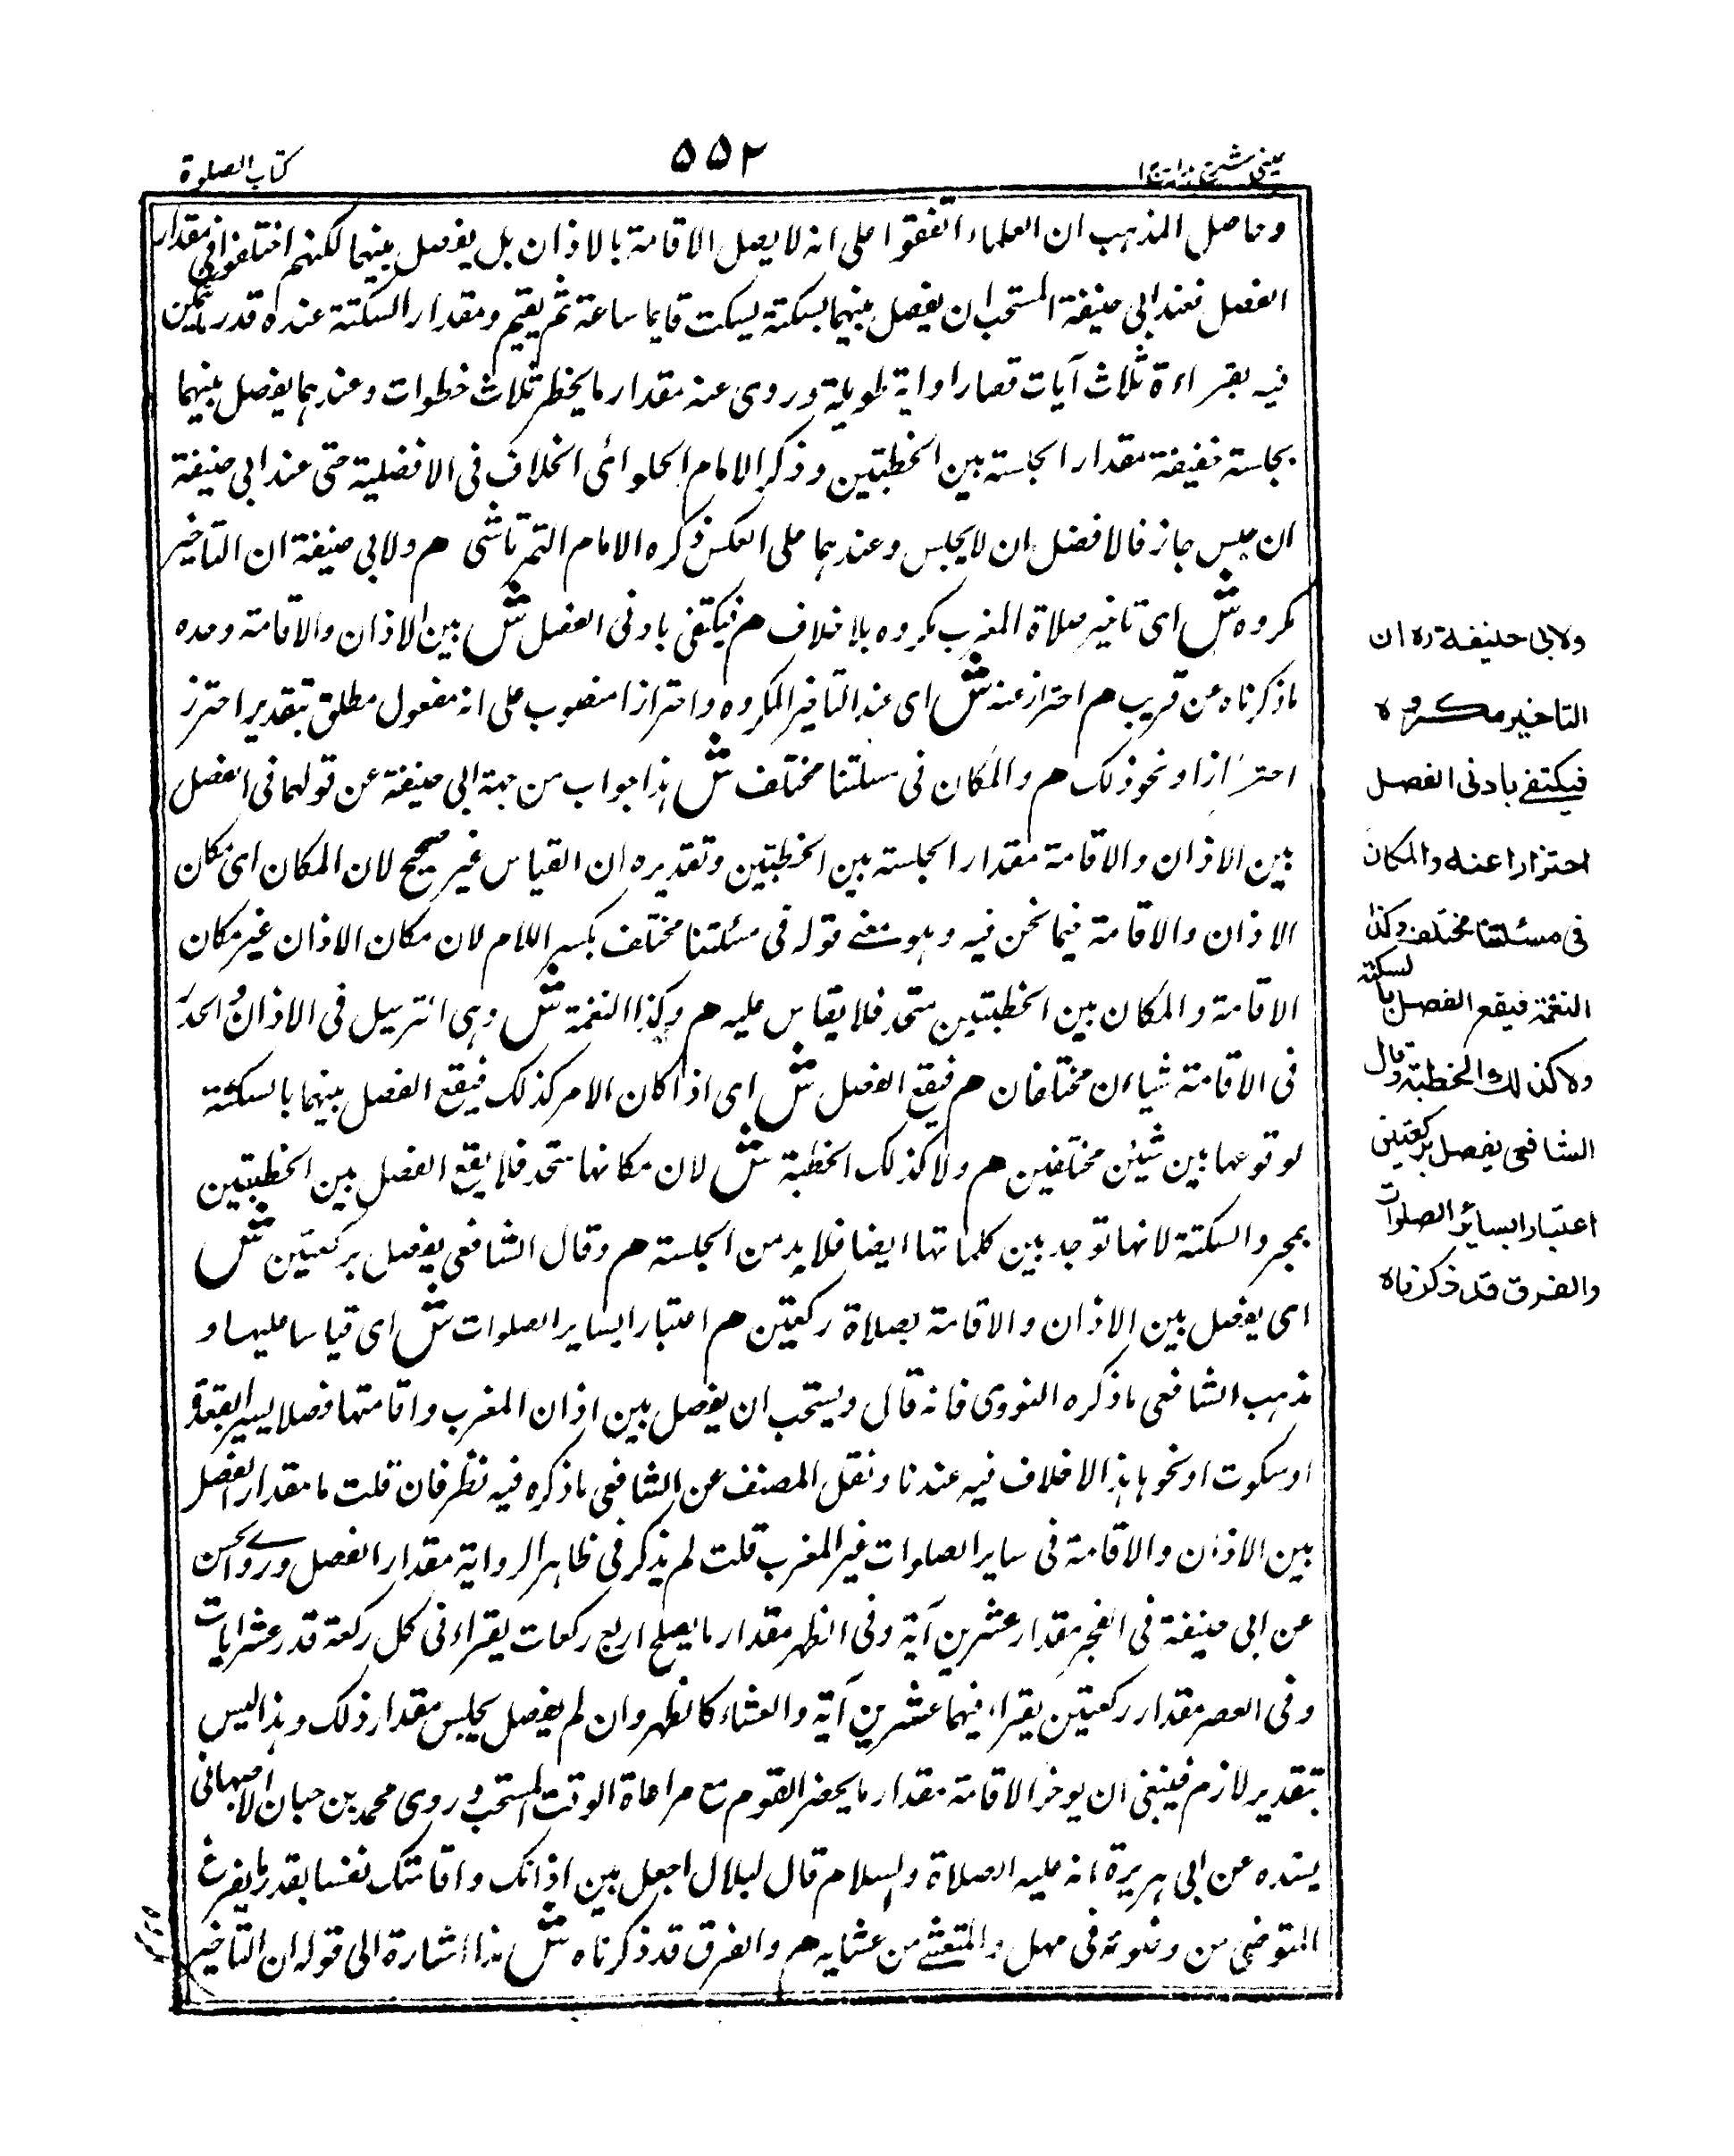 عینی شرح ہدایہ ج ا
۵۵۲
کتاب الصلوة
وحاصل المذہب ان العلماء اتفقوا علی انہ لا یصل الاقامۃ بالاذان بل یفصل بینہما لکنہم اختلفوا فی مقدار
الفصل فعند ابی حنیفۃ المستحب ان یفصل بینہما بسکتۃ یسکت قایما ساعۃ ثم یقیم ومقدار السکتۃ عندہ قدر ما یتمکن
فیہ بقراءۃ ثلاث آیات قصار او ایۃ طویلۃ وروی عنہ مقدار ما یخطر ثلاث خطوات وعندہما یفصل بینہما
بجلسۃ خفیفۃ مقدار الجلسۃ بین الخطبتین وذکر الامام الحلوائی الخلاف فی الافضلیۃ حتی عند ابی حنیفۃ
ان جلس جاز فالافضل ان لا یجلس وعندہما علی العکس ذکرہ الامام التمرتاشی ھم ولابی حنیفۃ ان التاخیر
مکروہ ش ای تاخیر صلاۃ المغرب مکروہ بلا خلاف ھم فیکتفی بادنی الفصل ش بین الاذان والاقامۃ وحدہ
ما ذکرناہ عن قریب ھم احترازا عنہ ش ای عند التاخیر المکروہ واحترازا منصوب علی انہ مفعول مطلق بتقدیر احترز
احترازا ونحو ذلک ھم والمکان فی مسلتنا مختلف ش ہذا جواب من جہۃ ابی حنیفۃ عن قولہما فی الفصل
بین الاذان والاقامۃ مقدار الجلسۃ بین الخطبتین وتقدیرہ ان القیاس غیر صحیح لان المکان ای مکان
الاذان والاقامۃ فیما نحن فیہ وہو معنے قولہ فی مسئلتنا مختلف بکسر اللام لان مکان الاذان غیر مکان
الاقامۃ والمکان بین الخطبتین متحد فلا یقاس علیہ ھم وکذا النغمۃ ش وہی الترسیل فی الاذان والحدر
فی الاقامۃ شیاءان مختلفان ھم فیقع الفصل ش ای اذا کان الامر کذلک فیقع الفصل بینہما بالسکتۃ
لوقوعہا بین شیئین مختلفین ھم ولا کذلک الخطبۃ ش لان مکانہا متحد فلا یقع الفصل بین الخطبتین
بمجرد السکتۃ لانہا توجد بین کلماتہا ایضا فلا بد من الجلسۃ ھم وقال الشافعی یفصل برکعتین ش
ای یفصل بین الاذان والاقامۃ بصلاۃ رکعتین ھم اعتبارا بسایر الصلوات ش ای قیاسا علیہا و
مذہب الشافعی ما ذکرہ النووی فانہ قال ویستحب ان یفصل بین اذان المغرب واقامتہا فصلا یسیرا بقعدۃ
او سکوت او نحوہا ہذا لا خلاف فیہ عندنا ونقل المصنف عن الشافعی ما ذکرہ فیہ نظر فان قلت ما مقدار الفصل
بین الاذان والاقامۃ فی سایر الصلوات غیر المغرب قلت لم یذکر فی ظاہر الروایۃ مقدار الفصل وروے الحسن
عن ابی حنیفۃ فی الفجر مقدار عشرین آیۃ وفی الظہر مقدار ما یصلے اربع رکعات یقراء فی کل رکعۃ قدر عشر ایات
وفی العصر مقدار رکعتین یقراء فیہما عشرین آیۃ والعشاء کالظہر وان لم یفصل یجلس مقدار ذلک وہذا لیس
بتقدیر لازم فینبغی ان یوخر الاقامۃ مقدار ما یحضر القوم مع مراعاۃ الوقت المستحب وروی محمد بن حبان الاصبہانی
بسندہ عن ابی ہریرۃ انہ علیہ الصلاۃ والسلام قال لبلال اجعل بین اذانک واقامتک نفسا بقدر ما یفرغ
المتوضی من وضوئہ فی مہل والمتعشے من عشایہ ھم والفرق قد ذکرناہ ش ہذا اشارۃ الی قولہ ان التاخیر
ولابی حنیفۃ رہ ان
التاخیر مکروہ
فیکتفے بادنی الفصل
احترازا عنہ والمکان
فی مسئلتنا مختلف وکذا
النغمۃ فیقع الفصل بالسکتہ
ولا کذلک الخطبۃ وقال
الشافعی یفصل برکعتین
اعتبارا بسائر الصلوات
والفرق قد ذکرناہ